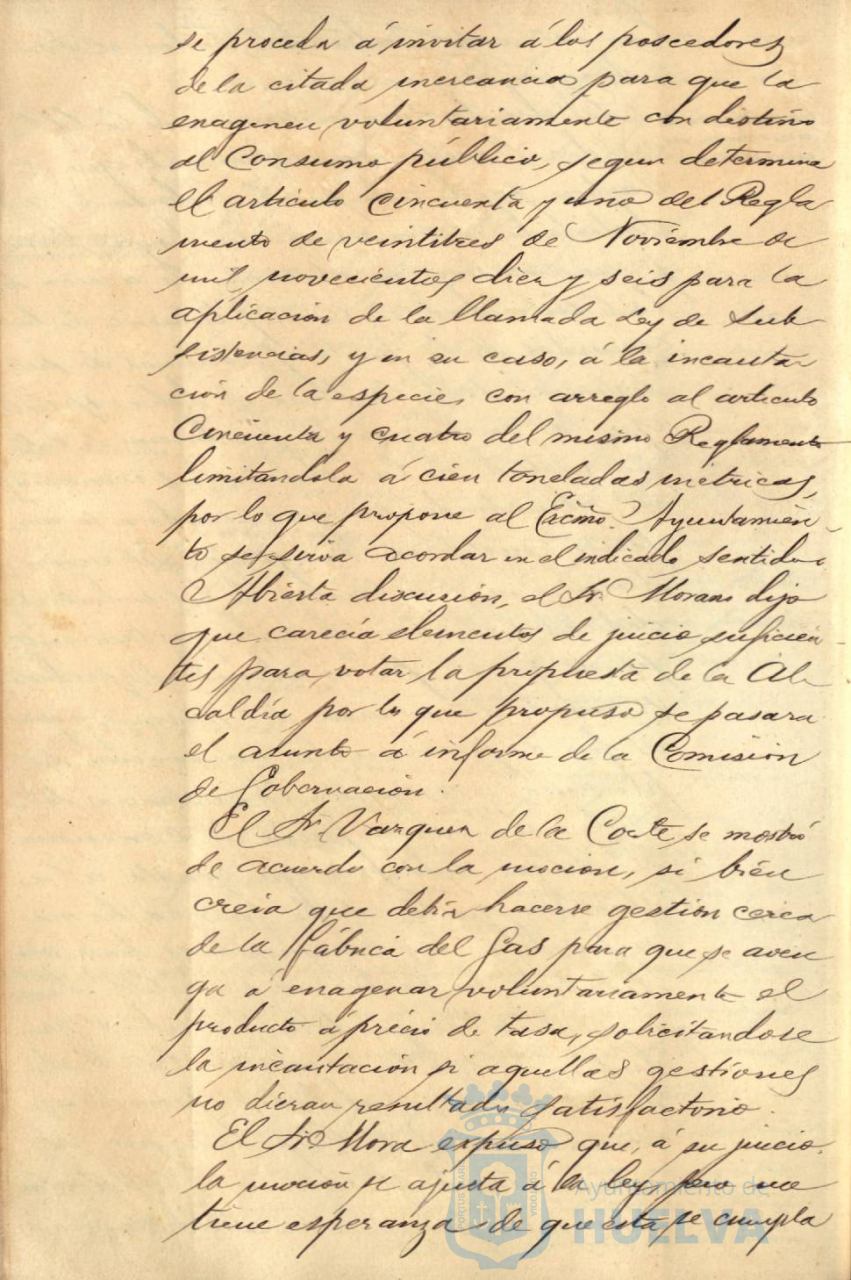 se proceda á invitar á los poseedores
de la citada mercancia para que la
enagenen voluntariamente con destino
al Consumo público, segun determina
el artículo Cincuenta y uno del Regla
mento de veintitres de Noviembre de
mil novecientos diez y seis para la
aplicación de la llamada Ley de Sub
sistencias, y en su caso, á la incauta
ción de la especie, con arreglo al artículo
Cincuenta y cuatro del mismo Reglamento
limitandola á cien toneladas métricas,
por lo que propone al Excmo. Ayuntamien
to se sirva acordar en el indicado sentido.
Abierta discusión, el Sr. Morano dijo
que carecía elementos de juicio suficien
tes para votar la propuesta de la Al
caldía por lo que propuso se pasara
el asunto á informe de la Comisión
de Gobernación.
El Sr. Vazquez de la Corte se mostró
de acuerdo con la mocion, si bien
creia que debia hacerse gestion cerca
de la fábrica del Gas para que se aven
ga á enagenar voluntariamente el
producto á precio de tasa, solicitandose
la incautación si aquellas gestiones
no dieran resultado satisfactorio.
El Sr. Mora expuso que, á su juicio,
la moción se ajusta á la ley, pero no
tiene esperanza de que esta se cumpla
Ayuntamiento de
HUELVA